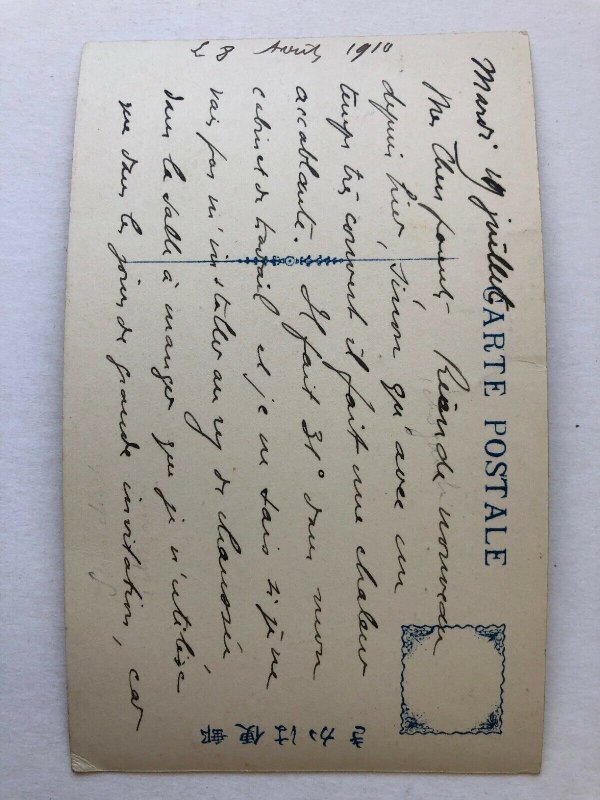 Mardi 19 juillet
CARTE POSTALE
Mes Chers parents Rien de nouveau
depuis hier, sinon qu'avec un
temps très couvert il fait une chaleur
accablante. Il fait 31° dans mon
cabinet de travail et je ne sais si je ne
vais pas m'installer au rez de chaussée
dans la salle à manger que je n'utilise
que dans les jours de grande invitation, car
8 Août 1910
郵便はかき